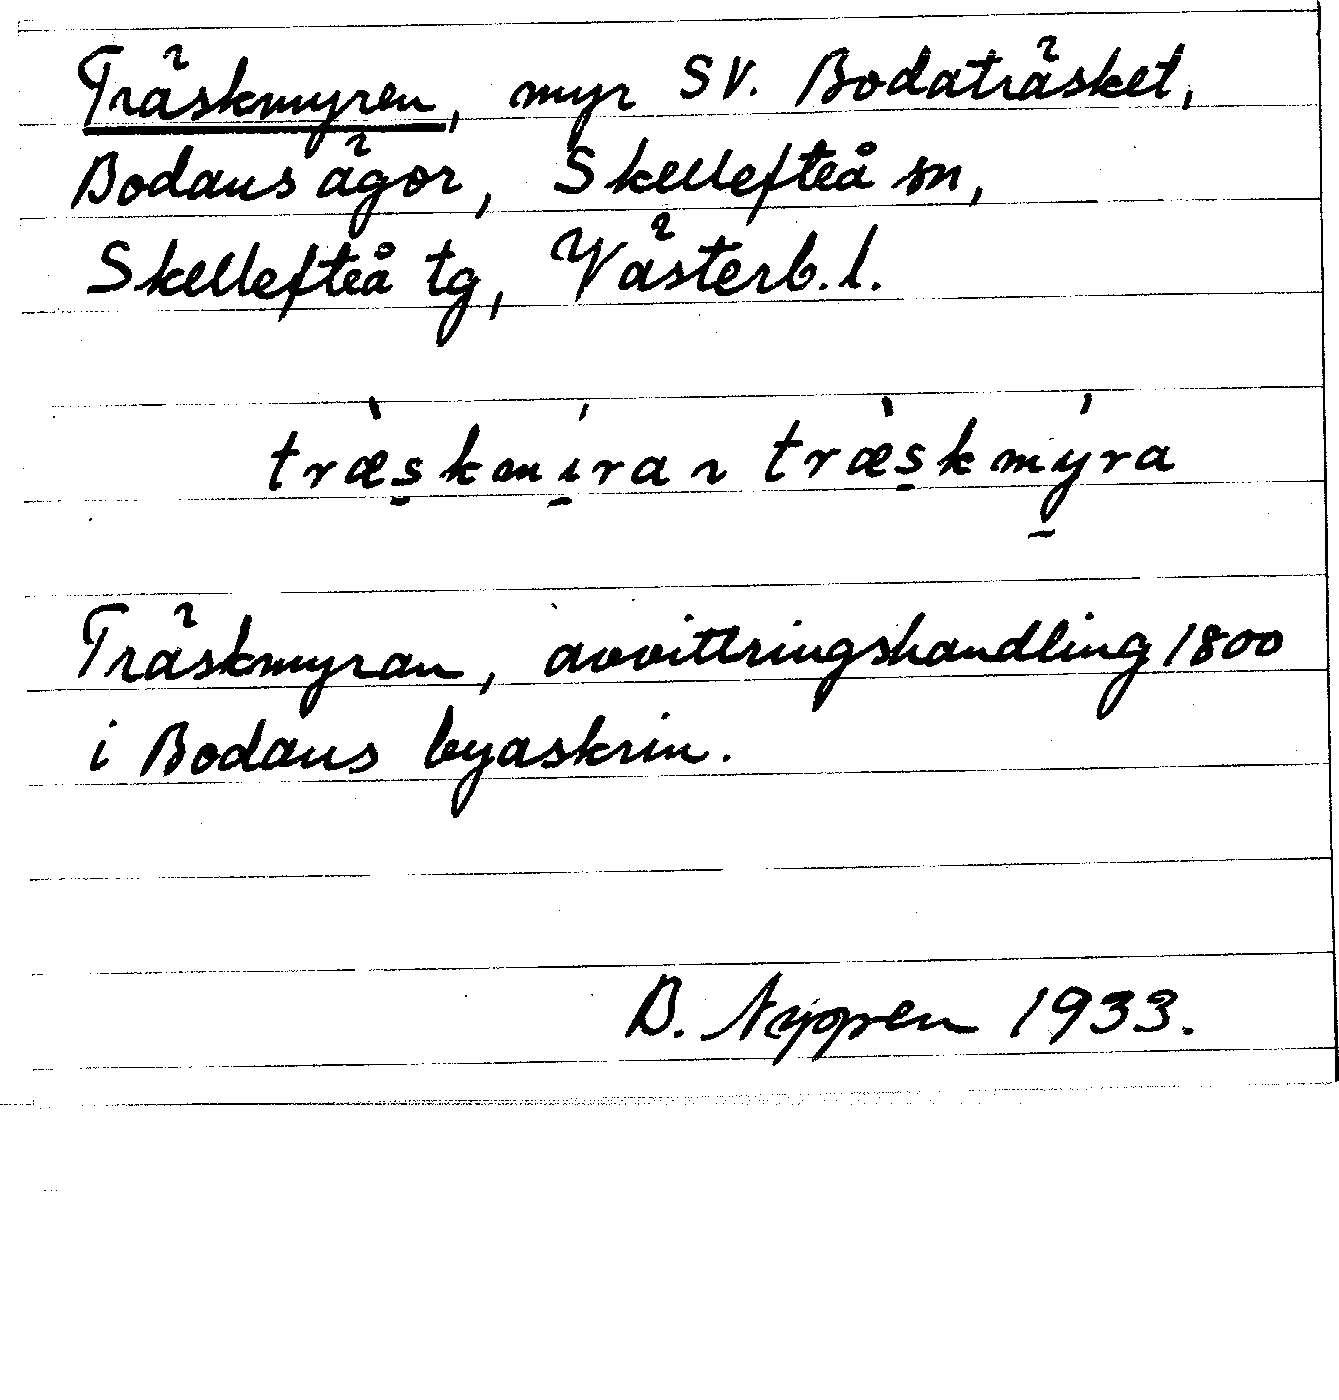 Träskmyren, myr SV. Bodaträsket,
Bodans ägor, Skellefteå sn,
Skellefteå tg, Västerb. l.
træ̀s̠kmí̠ra ~ træ̀s̠kmý̠ra
Träskmyran, avvittringshandling 1800
i Bodans byaskrin.
B. 1933.